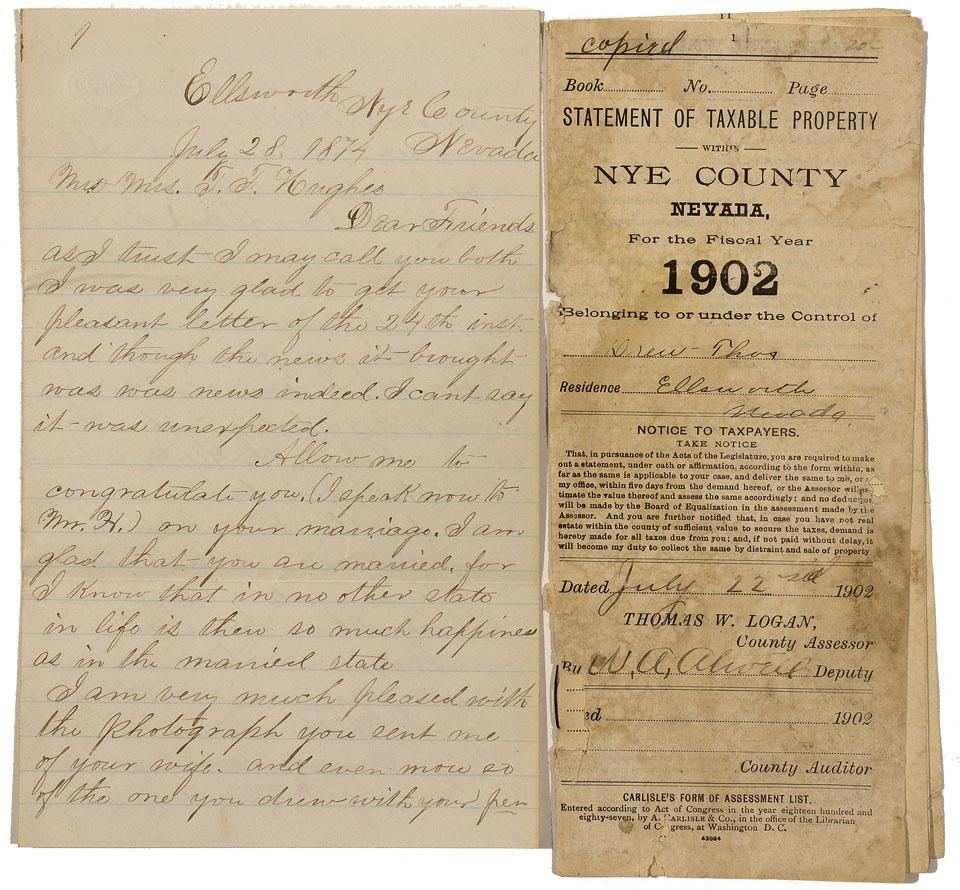 1
Ellsworth Nye County
July 28. 1874 Nevada
Mr Mrs. T. T. Hughes
Dear Friends
as I trust I may call you both
I was very glad to get your
pleasant letter of the 24th inst.
and though the news it brought
was was news indeed. I cant say
it was unexpected.
Allow me to
congratulate you. (I speak now to
Mr. H.) on your marriage. I am
glad that you are married. for
I know that in no other state
in life is there so much happiness
as in the married state
I am very much pleased with
the photograph you sent me
of your wife. and even more so
of the one you drew with your pen
1
copied
Book No. Page
STATEMENT OF TAXABLE PROPERTY
WITHIN
NYE COUNTY
NEVADA,
For the Fiscal Year
1902
Belonging to or under the Control of
Drew Thos
Residence Ellsworth
Nevada.
NOTICE TO TAXPAYERS.
TAKE NOTICE
That, in pursuance of the Acts of the Legislature, you are required to make
out a statement, under oath or affirmation, according to the form within, as
far as the same is applicable to your case, and deliver the same to me, or
my office, within five days from the demand hereof, or the Assessor will es-
timate the value thereof and assess the same accordingly; and no deduction
will be made by the Board of Equalization in the assessment made by the
Assessor. And you are further notified that, in case you have not real
estate within the county of sufficient value to secure the taxes, demand is
hereby made for all taxes due from you; and, if not paid without delay, it
will become my duty to collect the same by distraint and sale of property
Dated July 22nd 1902
THOMAS W. LOGAN,
County Assessor
By W. A. Deputy
ed 1902
County Auditor
CARLISLE'S FORM OF ASSESSMENT LIST.
Entered according to Act of Congress in the year eighteen hundred and
eighty-seven, by A. CARLISLE & Co., in the office of the Librarian
of Congress, at Washington D. C.